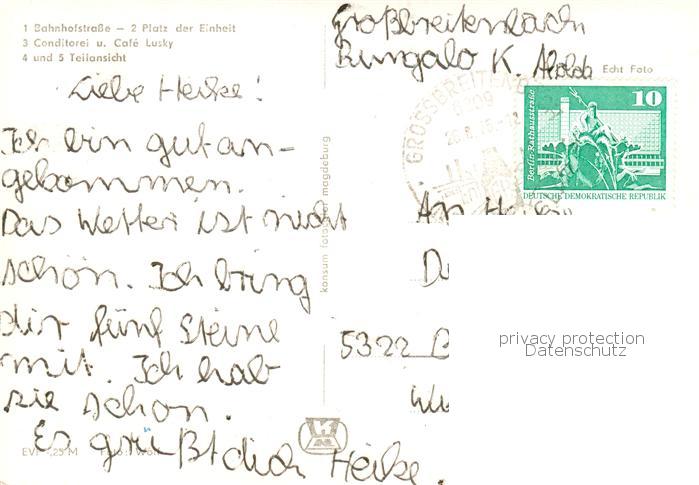 1 Bahnhofstraße – 2 Platz der Einheit
3 Conditorei u. Café Lusky
4 und 5 Teilansicht
Großbreitenbach
Bungalo K.
Echt Foto
Liebe Heike!
Ich bin gut an-
gekommen.
Das Wetter ist nicht
schön. Ich bring
dir fünf Steine
mit. Ich hab
sie schon.
Es grüßt dich Heike.
konsum fotocenter magdeburg
GROSSBREITENB
6309
Berlin-Rathausstraße
10
DEUTSCHE DEMOKRATISCHE REPUBLIK
An Heike
5322 B
privacy protection
Datenschutz
EVP -,25 M